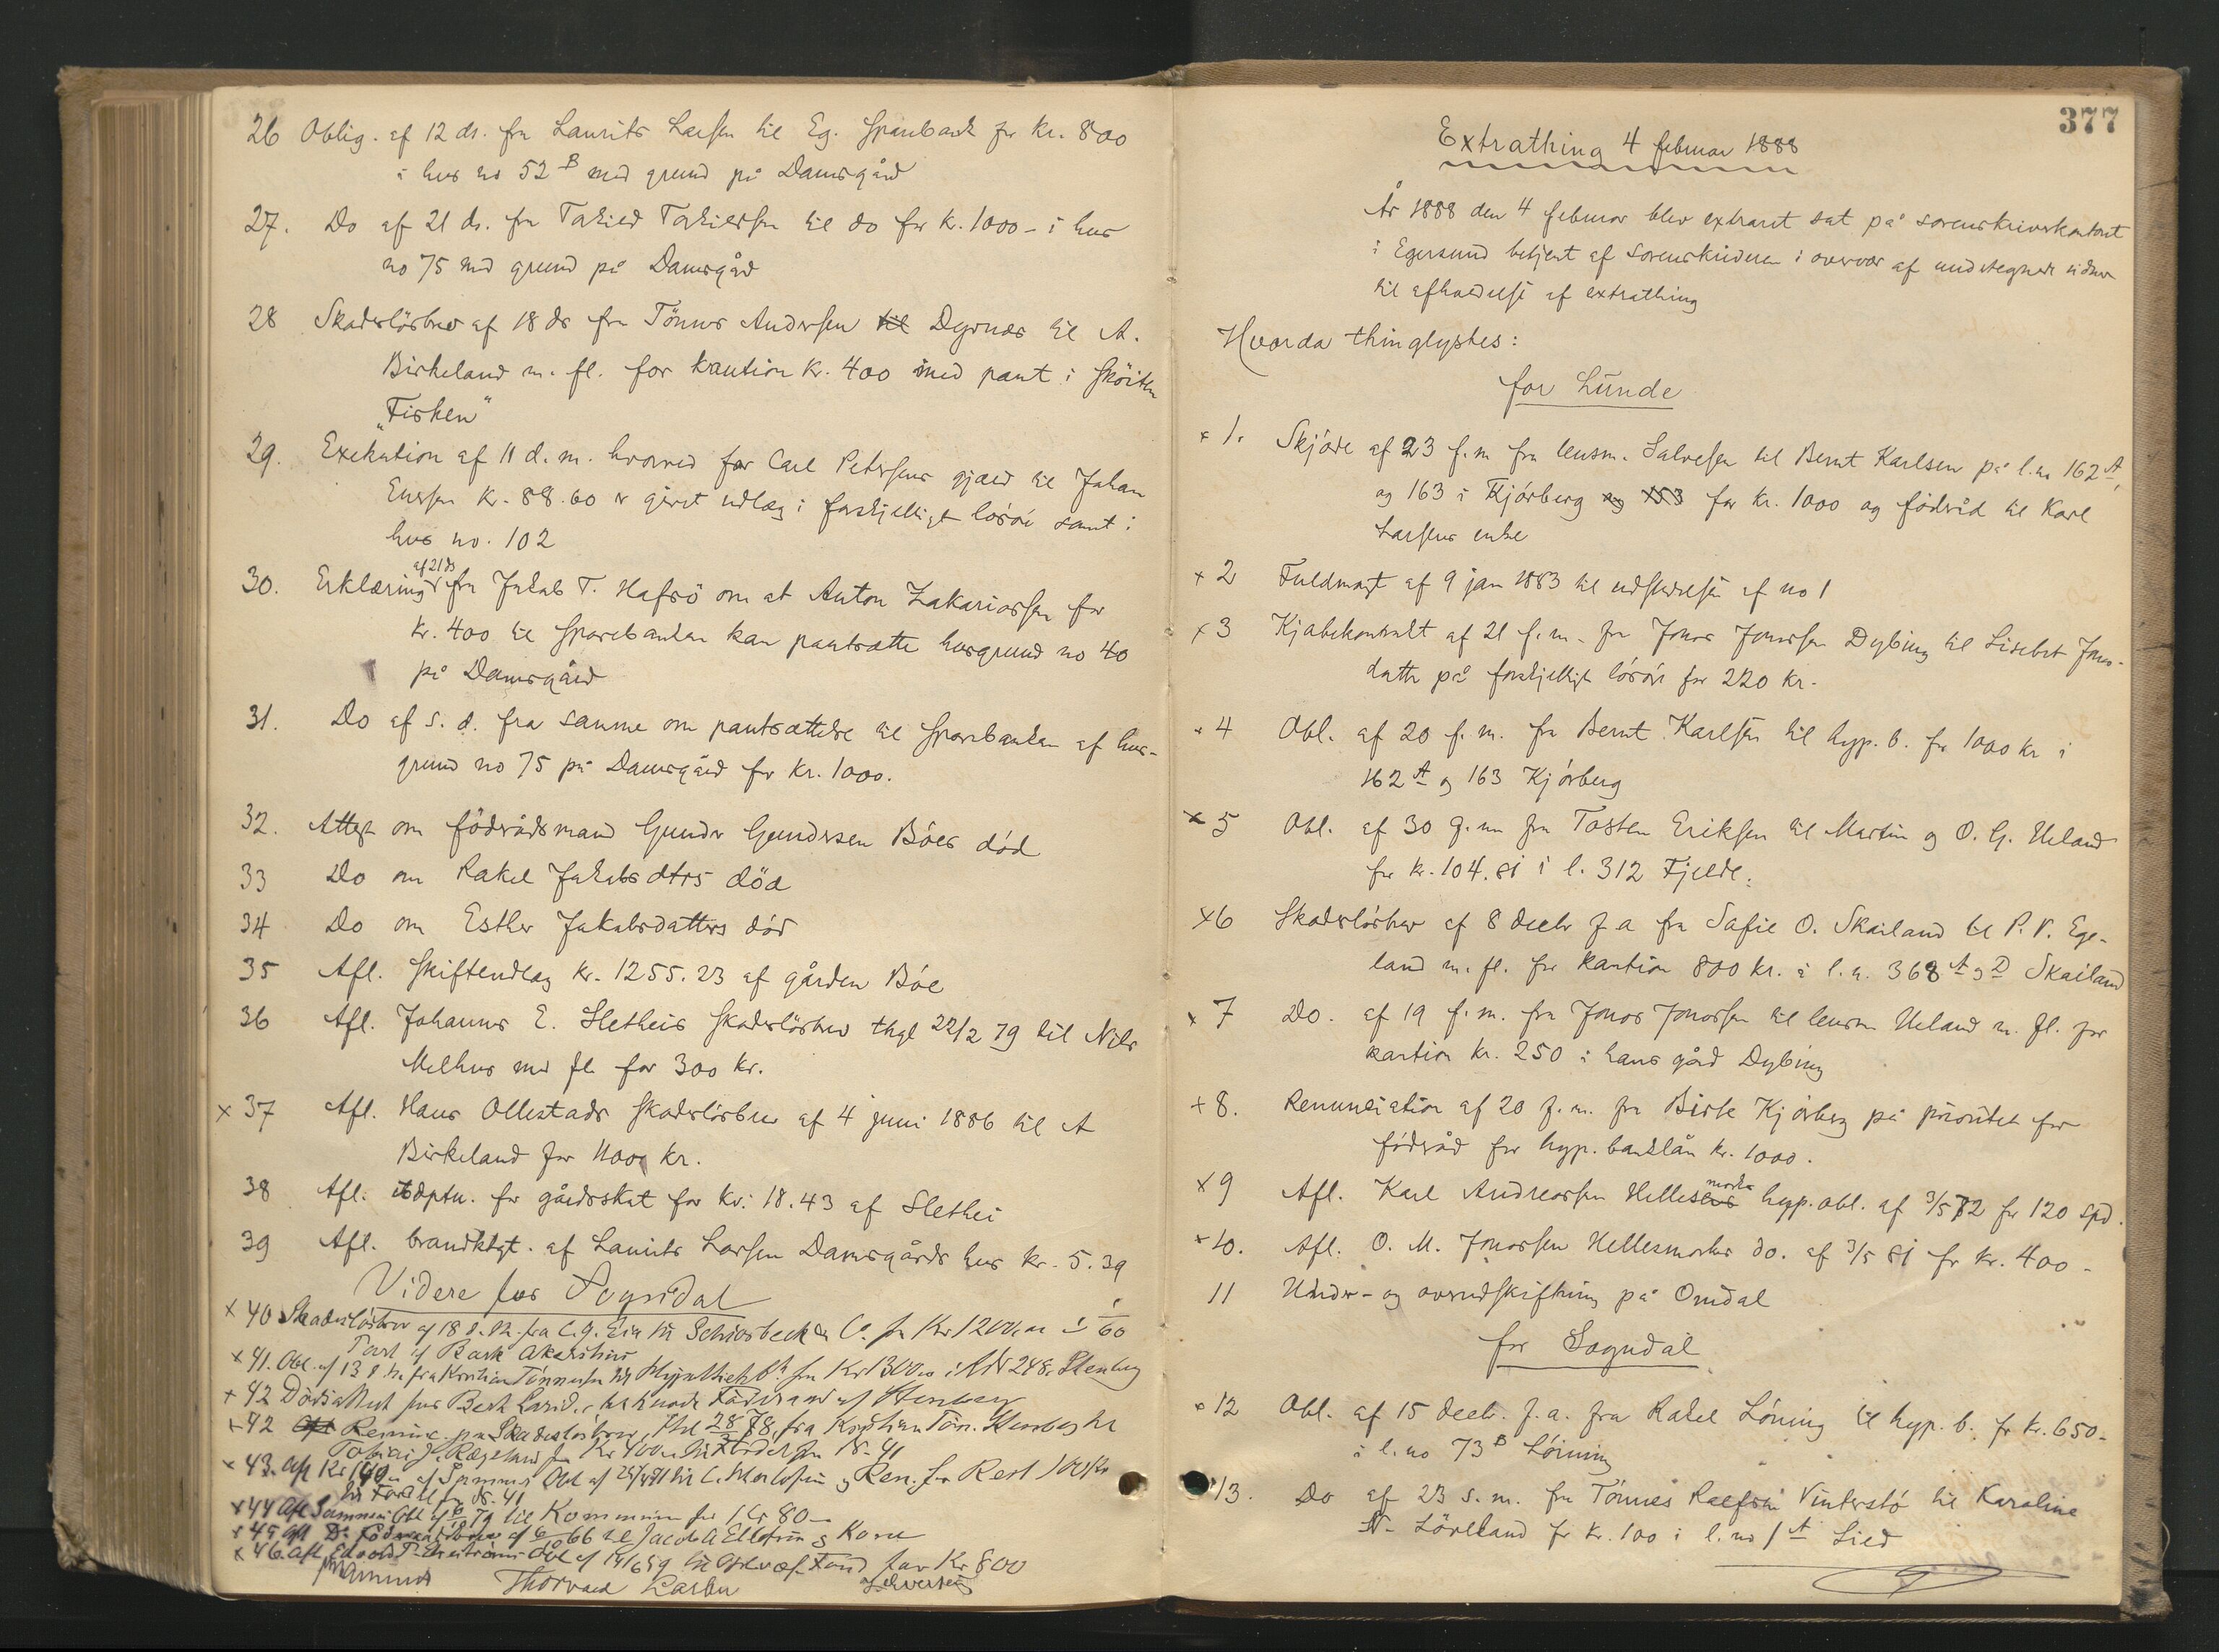 26 Oblig. af 12 ds. fra Laurits Larsen til Eg. Sparebank for kr. 800
i hus no 52 B med grund på Damsgård
27. Do af 21 ds. fra Takild Takildsen til do for kr. 1000 - i hus
no 75 med grund på Damsgård
28 Skadesløsbrev af 18 ds fra Tönnes Andersen til Dyrnes til A.
Birkeland m. fl. for kaution kr. 400 med pant i skøiten
„Fisken"
29. Exekution af 11 d. m. hvorved for Carl Petersens gjæld til Johan
kr. 88.60 er gjort udlæg i forskjelligt løsøre samt i
hus no. 102
30. Erklæring af 21 ds fra Jakob T. Hafsö om at Anton Zakariassen for
kr. 400 til Sparebanken kan pantsætte husgrund no 40
på Damsgård
31. Do af s. d. fra samme om pantsættelse til Sparebanken af hus-
grund no 75 på Damsgård for kr. 1000.
32. Attest om föderådsmand Gunder Gundersen Böes död
33 Do om Rakel Jakobsdtrs död
34 Do om Esther Jakobsdatters död
35 Afl. skifteudlæg kr. 1255.23 af gården Böe
36 Afl. Johannes E. Sletheis skadesløsbrev thgl 22/2 79 til Nils
Melhus med fl. for 300 kr.
x 37 Afl. Hans Ollestads skadesløsbrev af 4 juni 1886 til A
Birkeland for 400 kr.
38 Afl. for gårdsskat for kr. 18.43 af Slethei
39 Afl. brandktgt. af Laurits Larsen Damsgårds hus kr. 5.39
Videre for Sogndal
x 40 Skadesløsbrev af 18 d. M. fra til Schiørbeck & Co. for Kr 1200 i 1/60
Part af Bark Akershus
x 41. Obl. af 13 d. M. fra Kristian Tönnesen til Hypothekbk for Kr 1300 i LN 248 Stenberg
x 42 Dödsattest for Berte af Stenberg
x 42 Renunc. paa Skadesløsbrev, thl 28/3 78 fra Kristian Tön. Stenberg til
Tobias J. Rægeland for Kr 400 No. 41
x 43. Afl Kr af Sammes Obl af Ren. for Rest 100 Kr
for N. 41
x 44 Afl Sammes Obl af 79 til Kommunen for Kr 80 -
x 45 Afl Do af 6/ 66 til Jacob A og Kone
x 46. Afl Obl af 14/6 59 til Fond for Kr 800
Thorvald Larsen
377
Extrathing 4 februar 1888
År 1888 den 4 februar blev extraret sat på sorenskriverkontoret
i Egersund betjent af sorenskriveren i overvær af undertegnede vidner
til afholdelse af extrathing
Hvorda thinglystes:
for Lunde
x 1. Skjøde af 23 f. m fra lensm. Salvesen til Bernt Karlsen på l. no 162 A,
og 163 i Kjörberg og 153 for kr. 1000 og föderåd til Karl
Larsens enke
x 2 Fuldmagt af 9 jan 1883 til udstedelse af no 1
x 3 Kjøbekontrakt af 21 f. m. fra Jonas Jonassen Dybing til Lisebet Jonas-
datter på forskjelligt løsøre for 220 kr.
x 4 Obl. af 20 f. m. fra Bernt Karlsen til hyp. b. for 1000 kr i
162 A og 163 Kjörberg
x 5 Obl. af 30 f. m fra Tosten Eriksen til Martin og O. G. Ueland
for kr. 104.81 i l. 312 Fjelde.
x6 Skadesløsbrev af 8 decbr f. a fra Safie O. Skailand til P. P. Ege-
land m. fl. for kaution 800 kr. i l. n. 368 A og D Skailand
x 7 Do. af 19 f. m. fra Jonas Jonassen til lensm Ueland m. fl. for
kaution kr. 250 i hans gård Dybing
x 8. Renunciation af 20 f. m. fra Berte Kjörberg på prioritet for
föderåd for hyp. banklån kr. 1000.
x 9 Afl. Karl Andreassen Hellesmarks hyp. obl. af 3/5 72 for 120 spd.
x 10. Afl. O. M. Jonassen Hellesmarks do. af 3/5 81 for kr. 400 -
11 Under- og overudskiftning på Omdal
for Sogndal
x 12 Obl. af 15 decbr. f. a. fra Rakel Löning til hyp. b. for kr. 650 -
i l. no 73 B Löning
13. Do af 23 s. m. fra Tönnes Vinterstö til Karoline
N. for kr. 100 i l. no 1 A Lied